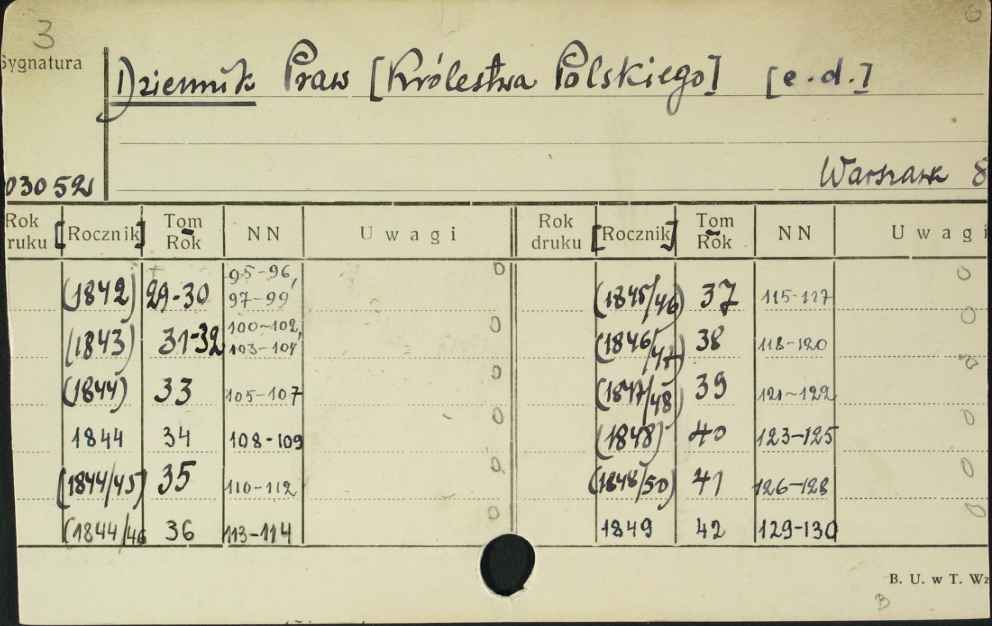 3
Sygnatura
Dziennik Praw [Królestwa Polskiego] [e.d.]
03052
Warszawa 8
Rok ruku [Rocznik] Tom Rok NN Uwagi Rok druku [Rocznik] Tom Rok NN Uwagi
(1842) 29-30 95-96, 97-99 0 (1845/46) 37 115-117 0
(1843) 31-32 100-102, 103-104 0 (1846/47) 38 118-120 0
(1844) 33 105-107 0 (1847/48) 39 121-122 0
1844 34 108-109 0 (1848) 40 123-125 0
(1844/45) 35 110-112 0 (1848/50) 41 126-128 0
(1844/46 36 113-114 0 1849 42 129-130 0
B. U. w T. Wz
B